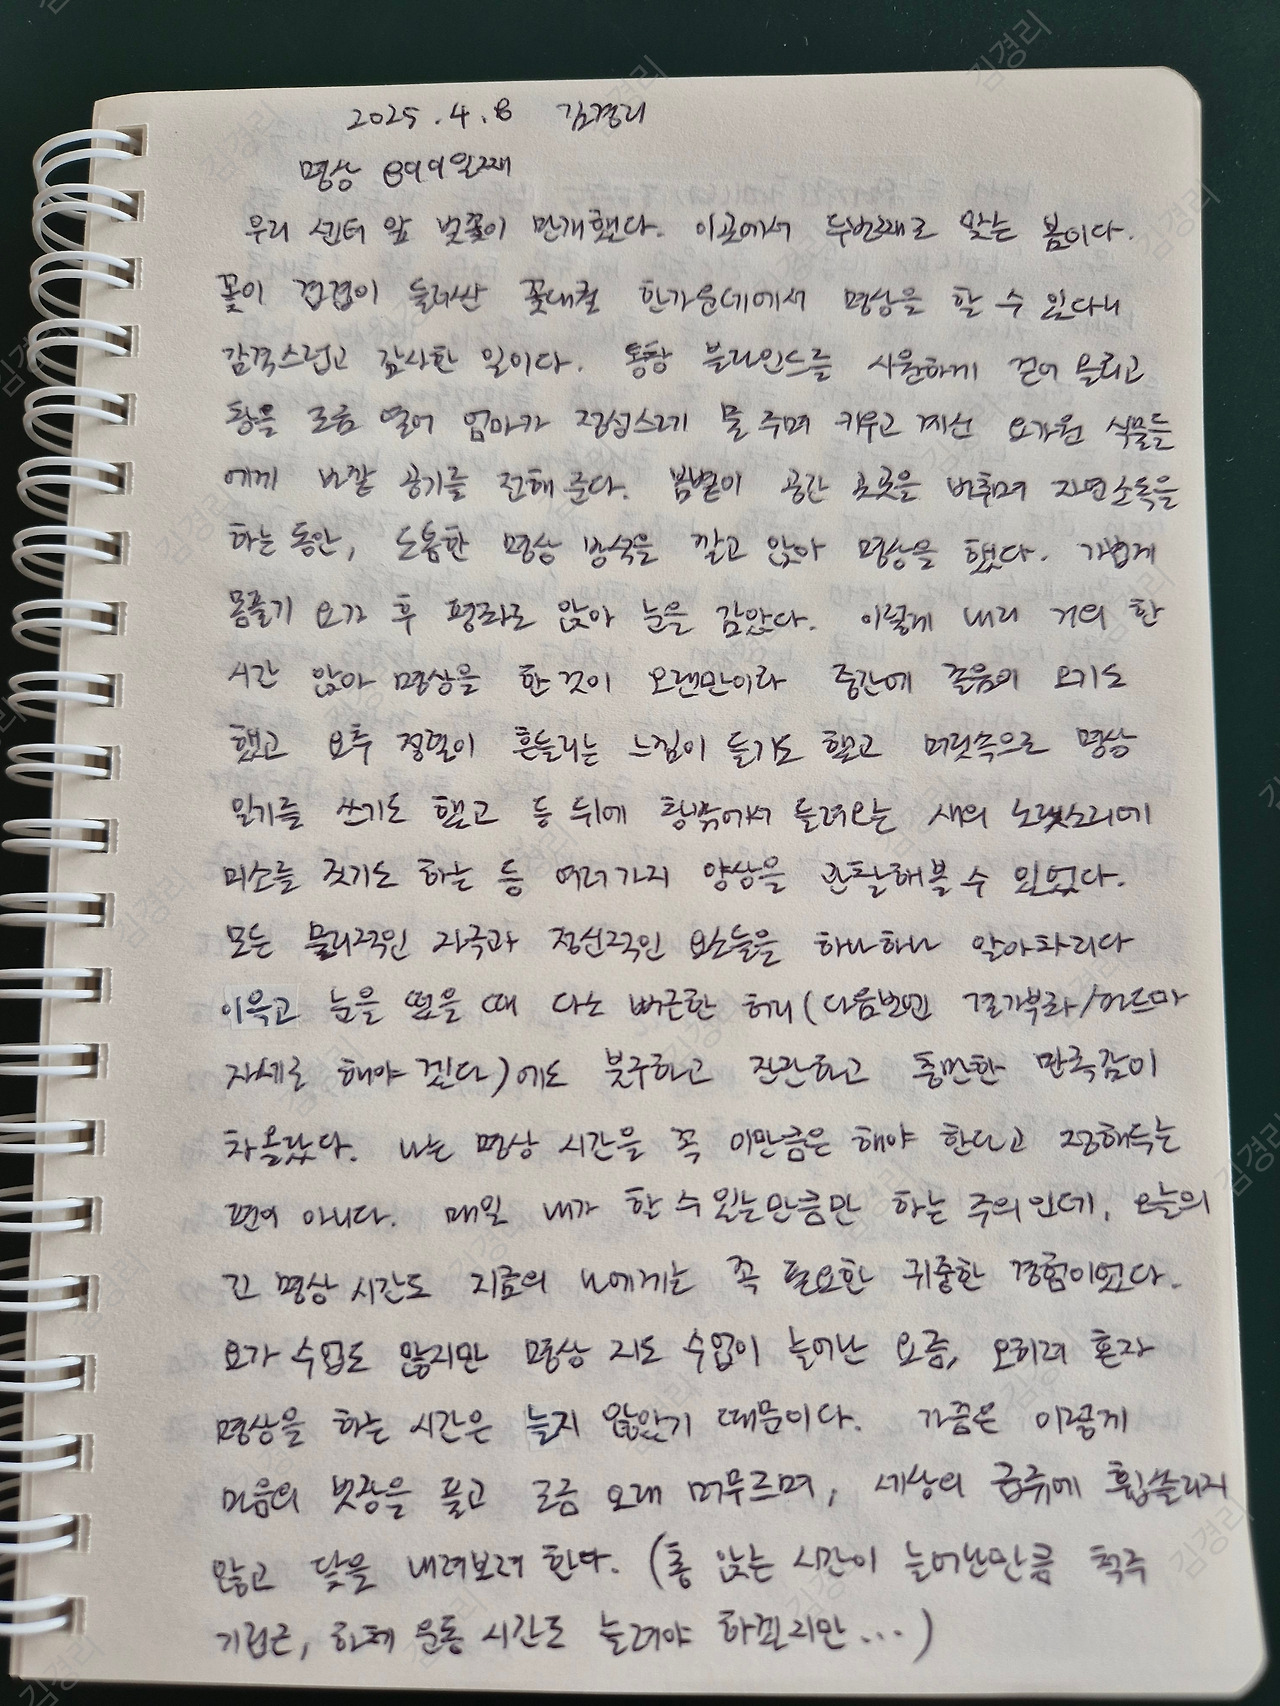 2025.4.8 김경리
명상 899일째
우리 센터 앞 벚꽃이 만개했다. 이곳에서 두번째로 맞는 봄이다.
꽃이 겹겹이 둘러싼 꽃대궐 한가운데에서 명상을 할 수 있다니
감격스럽고 감사한 일이다. 통창 블라인드를 시원하게 걷어 올리고
창을 조금 열어 엄마가 정성스레 물 주며 키우고 계신 요가원 식물들
에게 바깥 공기를 전해 준다. 봄볕이 공간 곳곳을 비추며 자연소독을
하는 동안, 도톰한 명상 방석을 깔고 앉아 명상을 했다. 가볍게
몸풀기 요가 후 평좌로 앉아 눈을 감았다. 이렇게 내리 거의 한
시간 앉아 명상을 한 것이 오랜만이라 중간에 졸음이 오기도
했고 요추 정렬이 흔들리는 느낌이 들기도 했고 머릿속으로 명상
일기를 쓰기도 했고 등 뒤에 창밖에서 들려오는 새의 노랫소리에
미소를 짓기도 하는 등 여러가지 양상을 관찰해볼 수 있었다.
모든 물리적인 자극과 정신적인 요소들을 하나하나 알아차리다
이윽고 눈을 떴을 때 다소 뻐근한 허리(다음번엔 결가부좌/버드마
자세로 해야겠다)에도 불구하고 잔잔하고 충만한 만족감이
차올랐다. 나는 명상 시간을 꼭 이만큼은 해야 한다고 정해두는
편이 아니다. 매일 내가 할 수 있는만큼만 하는 주의인데, 오늘의
긴 명상 시간도 지금의 나에게는 꼭 필요한 귀중한 경험이었다.
요가 수업도 많지만 명상 지도 수업이 늘어난 요즘, 오히려 혼자
명상을 하는 시간은 늘지 않았기 때문이다. 가끔은 이렇게
마음의 빗장을 풀고 조금 오래 머무르며, 세상의 급류에 휩쓸리지
않고 닻을 내려보려 한다. (총 앉는 시간이 늘어난만큼 척주
기립근, 하체 운동 시간도 늘려야 하겠지만...)
김경리